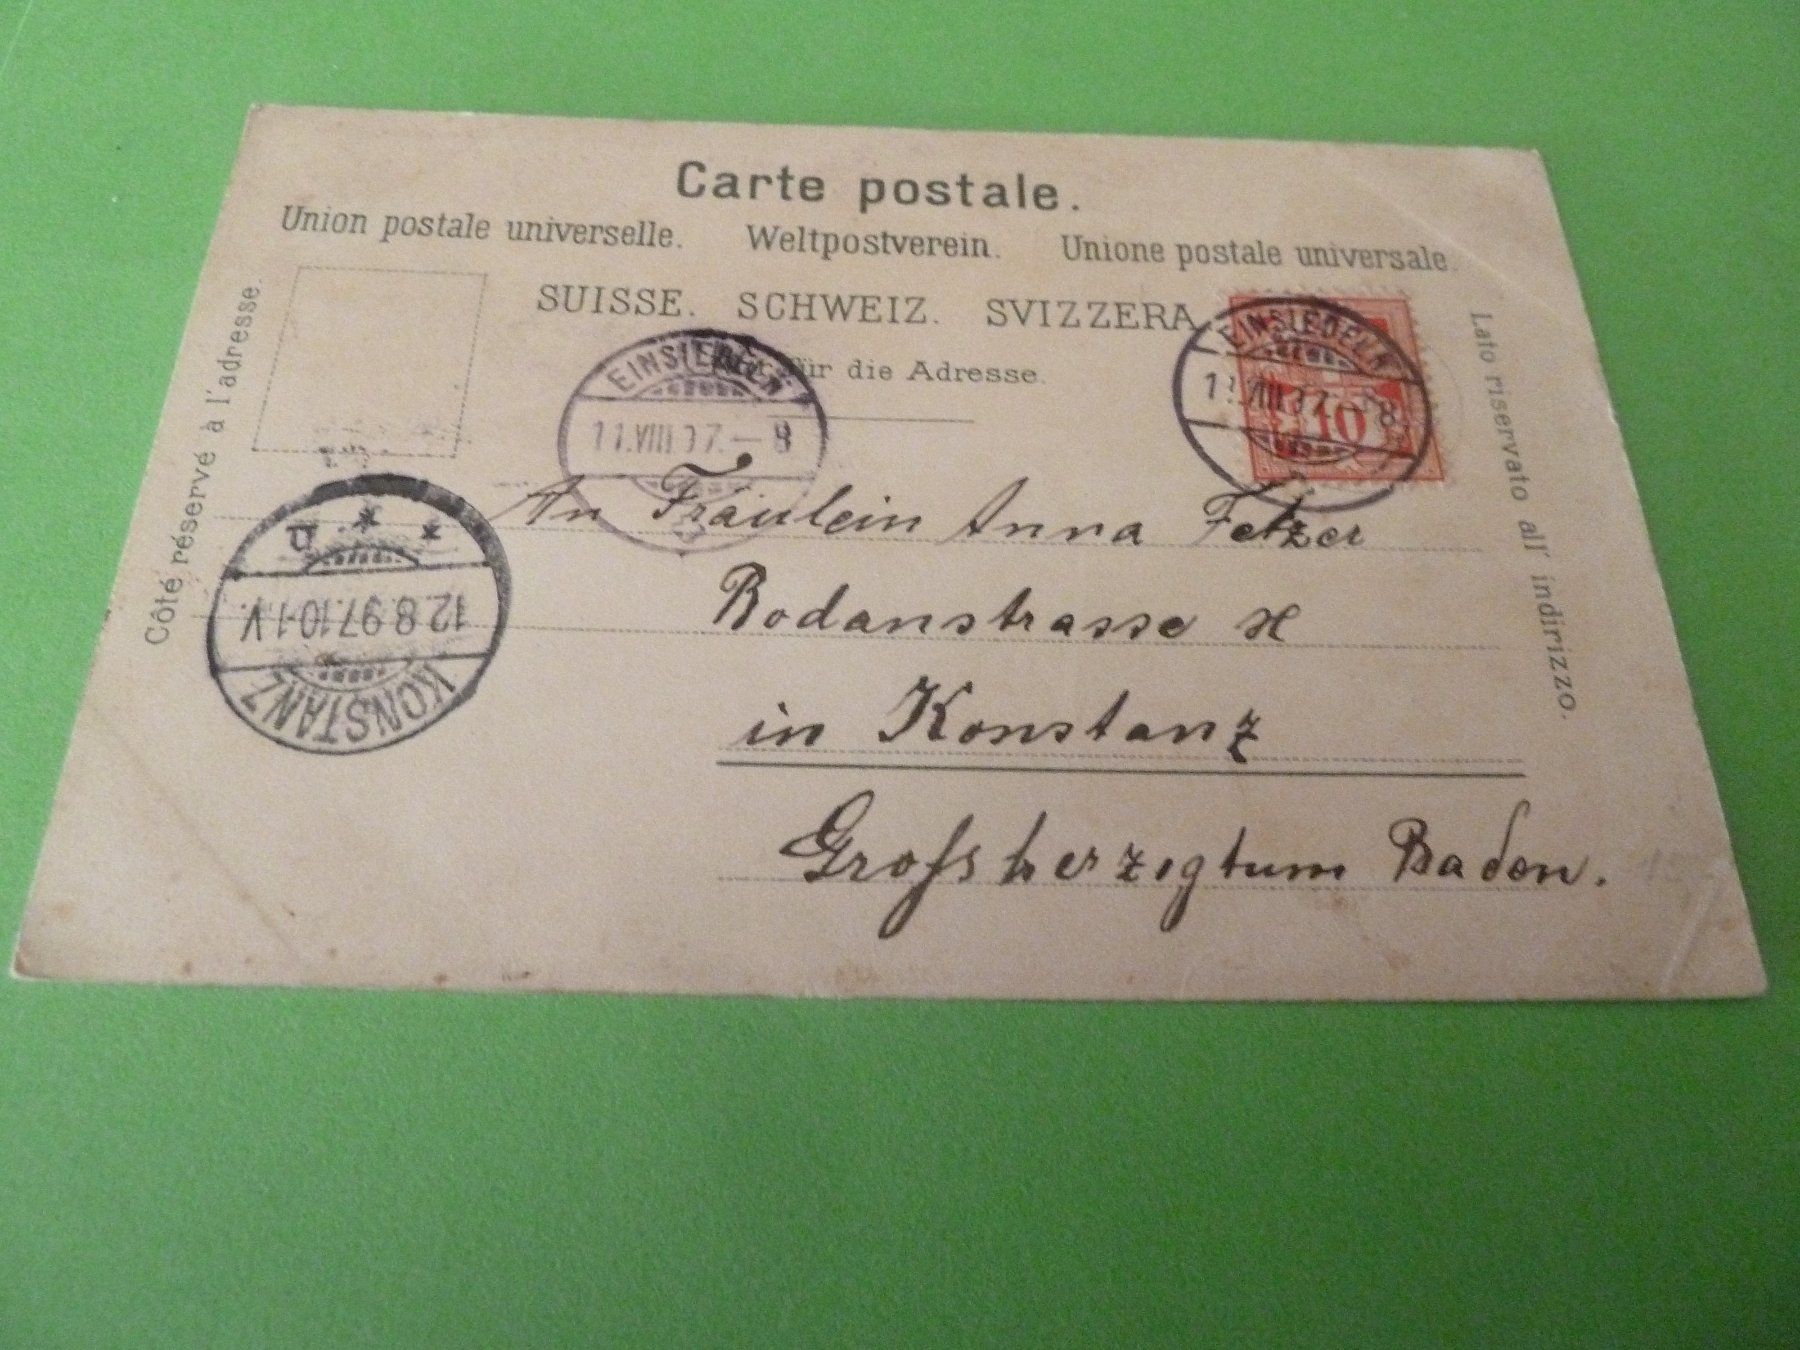 Carte postale.
Union postale universelle. Weltpostverein. Unione postale universale.
SUISSE. SCHWEIZ. SVIZZERA
für die Adresse.
Côté réservé à l'adresse.
Lato riservato all' indirizzo.
EINSIEDELN
11.VIII.97.–8
EINSIEDELN
11.VIII.97.–8
10
An Fräulein Anna Fetzer
Bodanstrasse
in Konstanz
Grofsherzigtum Baden.
KONSTANZ
12.8.97.10-11V.